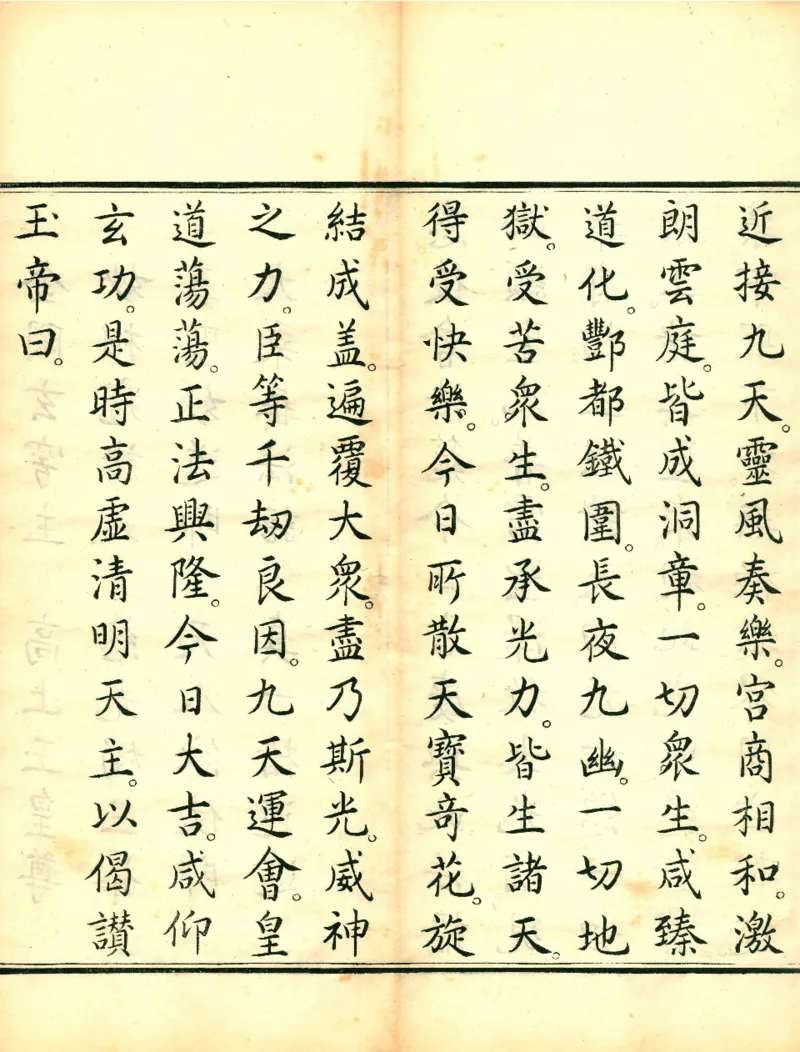 近接九天。靈風奏樂。宮商相和。激
朗雲庭。皆成洞章。一切衆生。咸臻
道化。酆都鐵圍。長夜九幽。一切地
獄。受苦衆生。盡承光力。皆生諸天。
得受快樂。今日所散天寶奇花。旋
結成盖。遍覆大衆。盡乃斯光。威神
之力。臣等千劫良因。九天運會。皇
道蕩蕩。正法興隆。今日大吉。咸仰
玄功。是時高虛清明天主。以偈讃
玉帝曰。